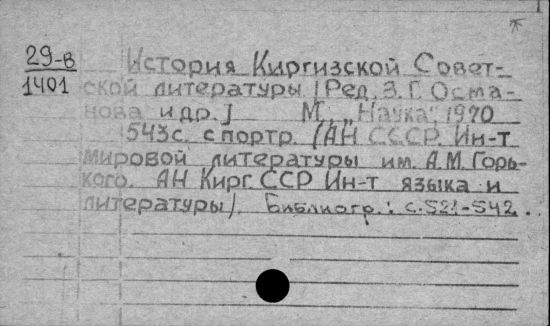 29-в История Киргизской Совет-
1401 ской литературы (Ред. З. Г. Осма-
нова и др.) М., „Наука“, 1970
543 с. с портр. (АН СССР. Ин-т
мировой литературы им. А. М. Горь-
кого. АН Кирг. ССР Ин-т языка и
литературы). Библиогр.: с. 521-542.